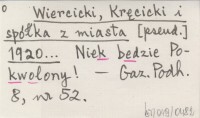 Wiercicki, Kręcicki i
spółka z miasta [pseud.]
1920... Niek będzie Po-
kwolony! — Gaz. Podh.
8, nr 52.